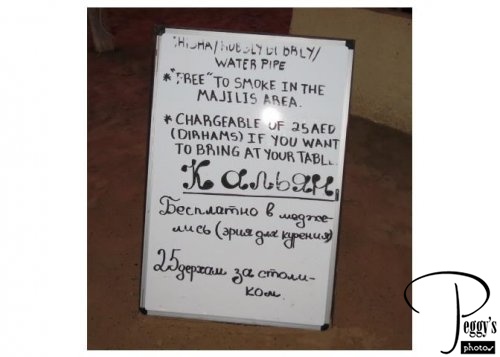 SHISHA/HUBBLY BUBBLY/
WATER PIPE
* "FREE" TO SMOKE IN THE
MAJILIS AREA.
* CHARGEABLE OF 25 AED
(DIRHAMS) IF YOU WANT
TO BRING AT YOUR TABLE.
Кальян
Бесплатно в медже-
лись (эрия для курения)
25 дерхам за столи-
ком.
Peggy's
photos